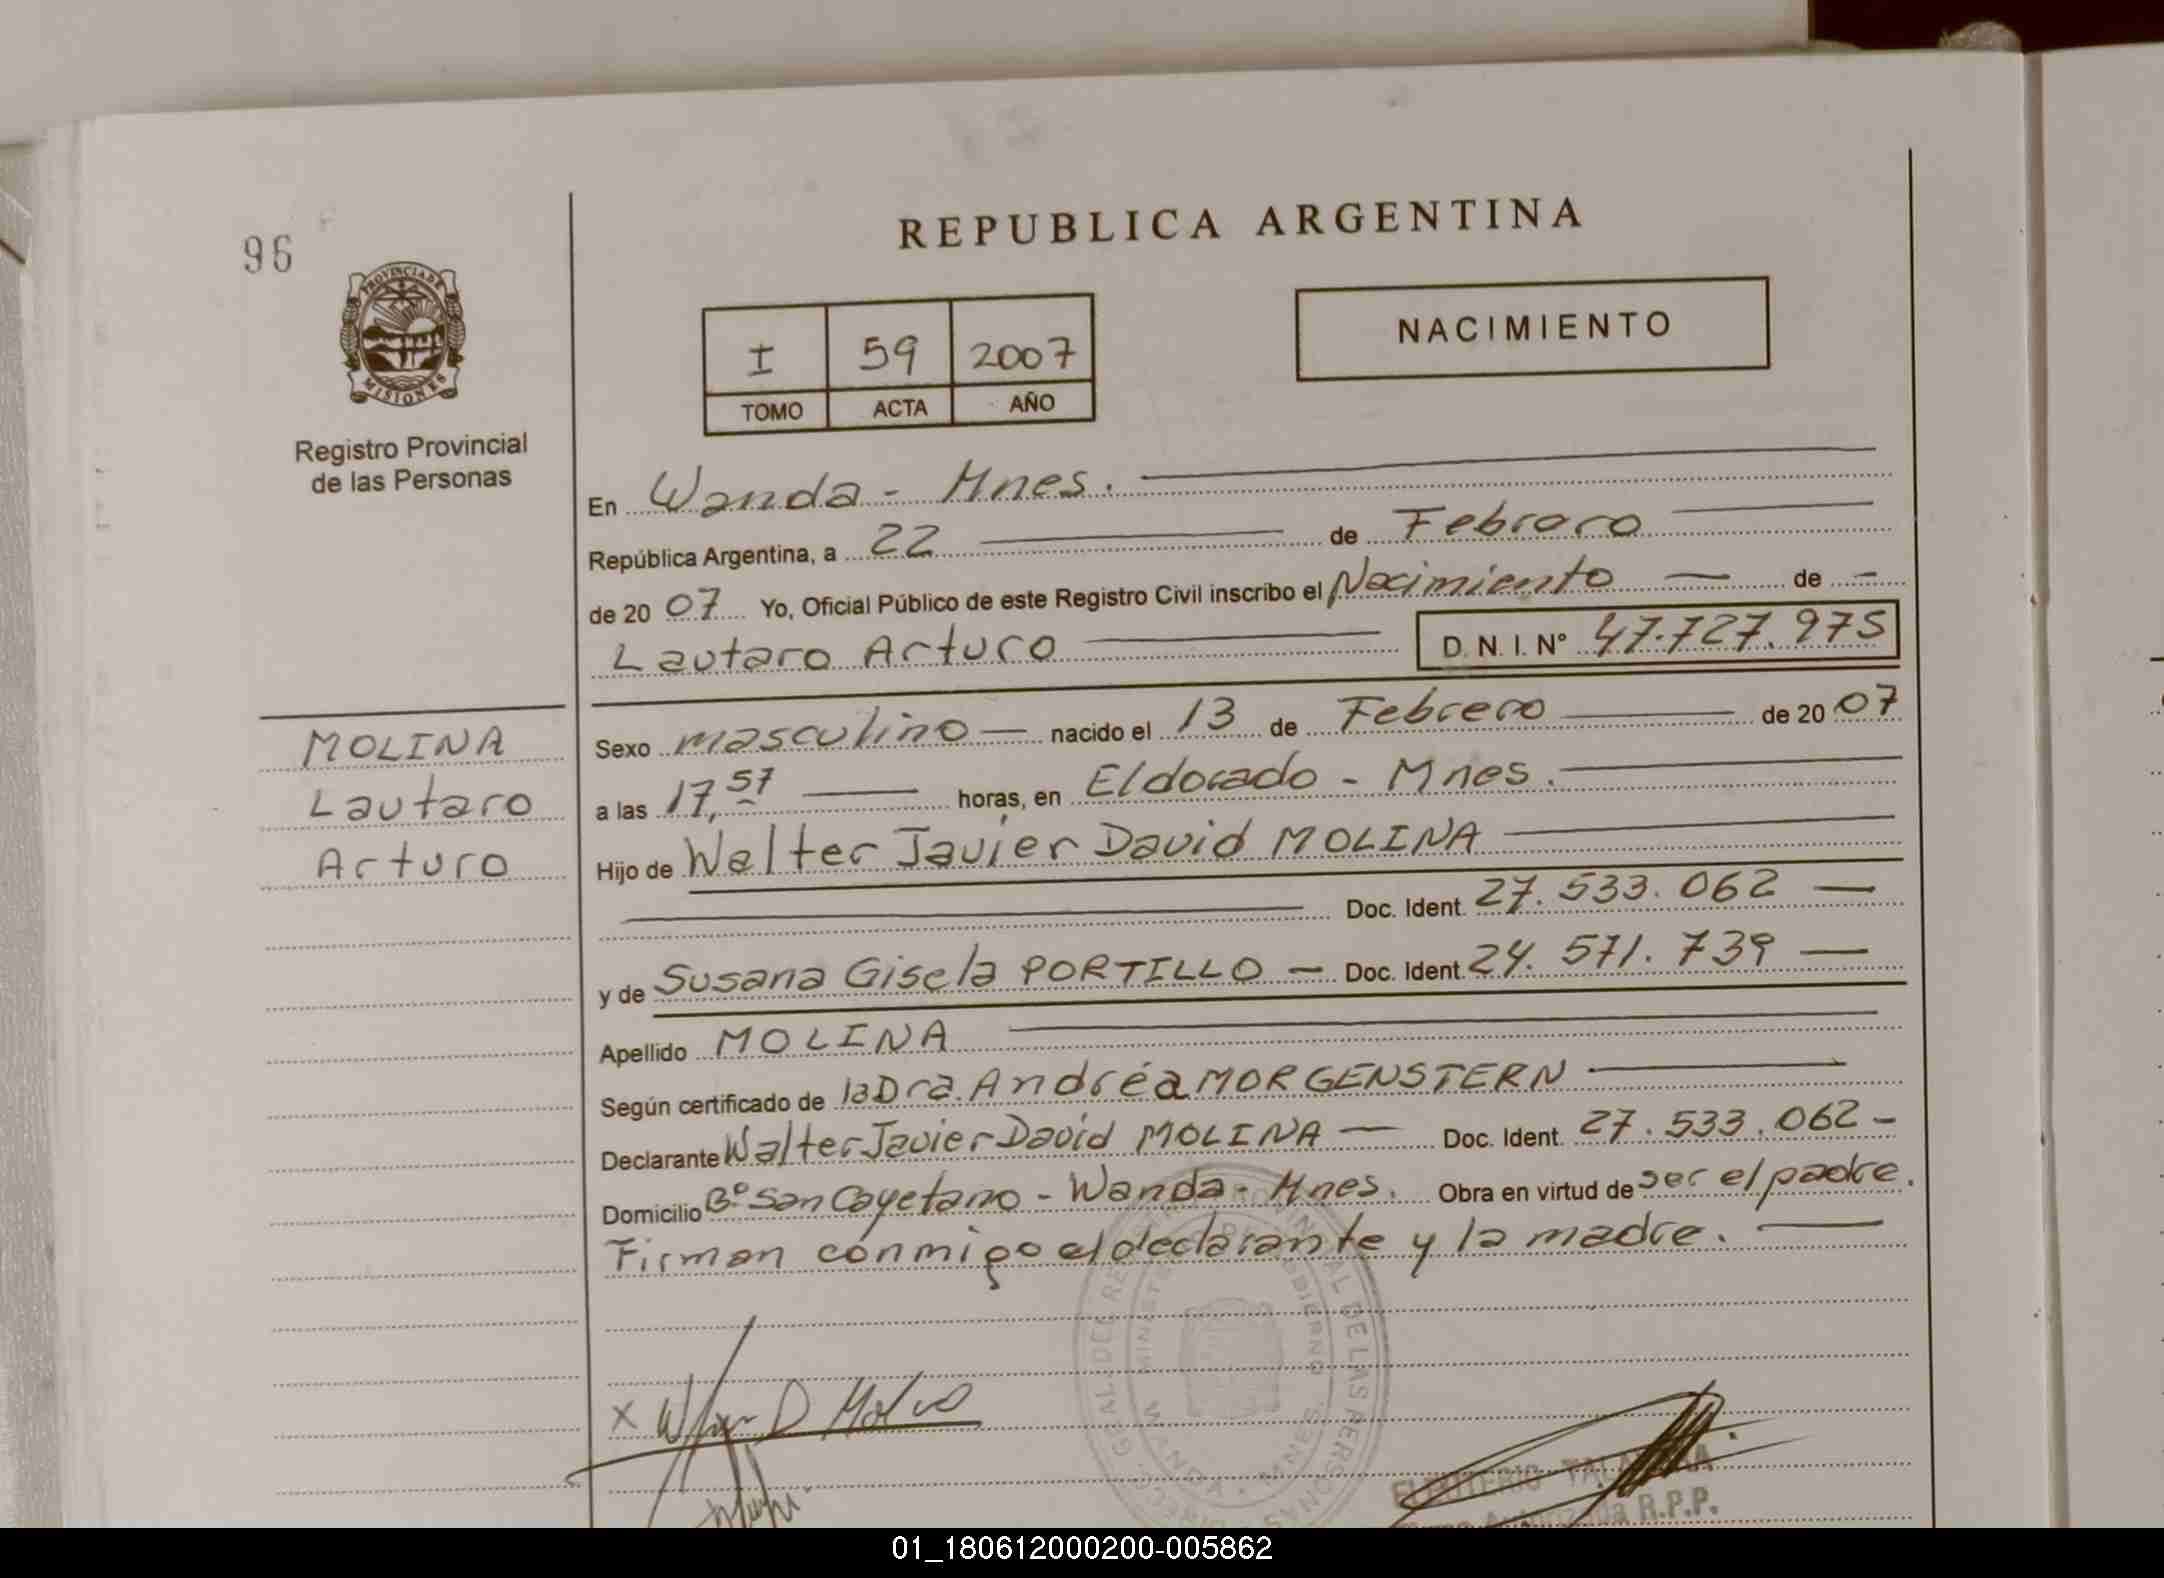 REPUBLICA ARGENTINA
96
PROVINCIA DE MISIONES
Registro Provincial
de las Personas
I 59 2007
TOMO ACTA AÑO
NACIMIENTO
En Wanda - Mnes.
República Argentina, a 22 de Febraro
de 20 07 Yo, Oficial Público de este Registro Civil inscribo el Nacimiento de
Lautaro Arturo D. N. I. N° 47.727.975
MOLINA
Lautaro
Arturo
Sexo masculino nacido el 13 de Febrero de 20 07
a las 17,57 horas, en Eldorado - Mnes.
Hijo de Walter Javier David MOLINA
Doc. Ident. 27.533.062
y de Susana Gisela PORTILLO Doc. Ident. 24.571.739
Apellido MOLINA
Según certificado de la Dra. Andréa MORGENSTERN
Declarante Walter Javier David MOLINA Doc. Ident. 27.533.062
Domicilio B° San Cayetano - Wanda - Mnes. Obra en virtud de ser el padre.
Firman conmigo el declarante y la madre.
X
R.P.P.
01_180612000200-005862